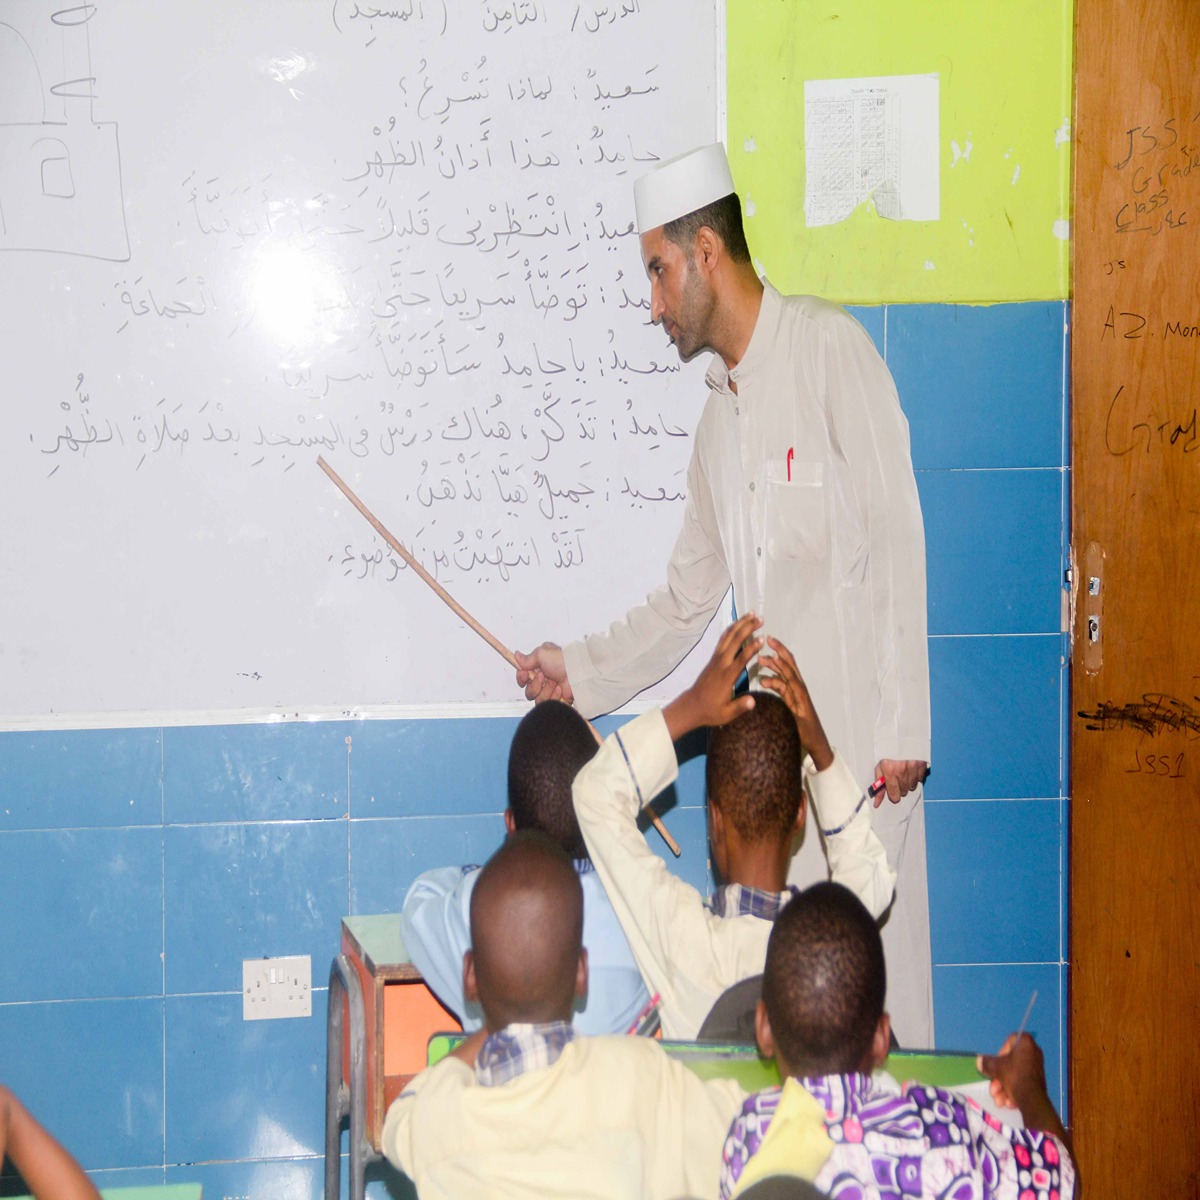 الدرس/ الثَّامِنُ (المسْجِدِ)
سَعيدٌ: لماذا تُسْرِعُ؟
حامِدٌ: هَذا أَذانُ الظُهْرِ.
اِنْتَظِرْنِي قَليلاً حَتَّى أَتَوَضَّأَ.
تَوَضَّأْ سَرِيعًا حَتَّى الْجَماعَةِ.
سعيدُ: يا حامِدُ سَأَتَوَضَّأُ سَرِيعًا.
حامِدُ: تَذَكَّرْ، هُناكَ دَرْسٌ في المسْجِدِ بَعْدَ صَلَاةِ الظُّهْرِ.
سَعيد: جَمِيلٌ هَيَّا نَذْهَبُ.
لَقَدْ انتهَيْتُ مِنَ الوُضوءِ.
JSS
Grade
Class
JS
AZ. Mon
JSS1